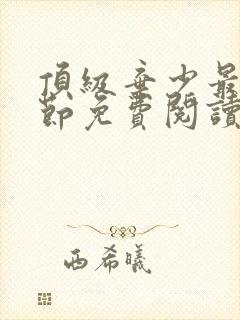 頂級棄少最
節免費閱讀
西希曦